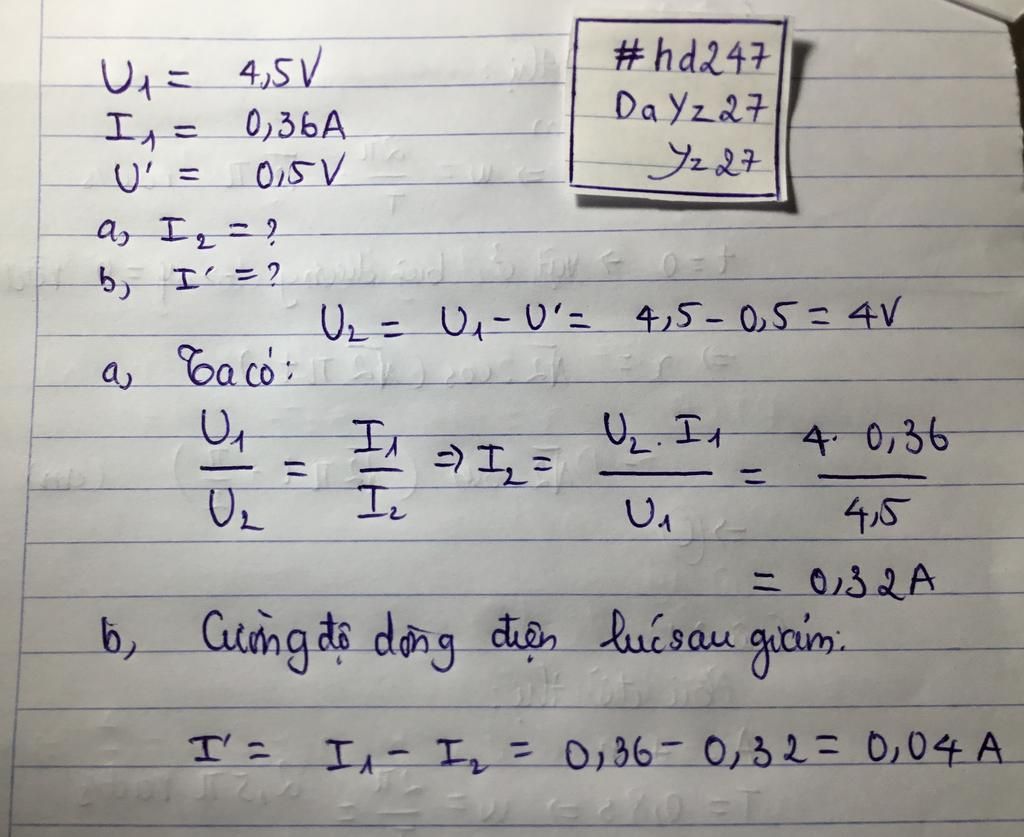 U₁ = 4,5V
I₁ = 0,36A
U' = 0,5V
a, I₂ = ?
b, I' = ?
#hd247
DaYz27
Yz27
U₂ = U₁ - U' = 4,5 - 0,5 = 4V
a, Ta có:
U₁/U₂ = I₁/I₂ ⇒ I₂ = U₂.I₁/U₁ = 4.0,36/4,5
= 0,32A
b, Cường độ dòng điện lúc sau giảm:
I' = I₁ - I₂ = 0,36 - 0,32 = 0,04 A